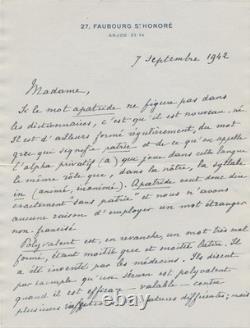 27, FAUBOURG ST HONORÉ
ANJOU 23-14
7 Septembre 1942
Madame,
Si le mot apatride ne figure pas dans
les dictionnaires, c'est qu'il est nouveau, né
Il est d'ailleurs formé régulièrement, du mot
grec qui signifie patrie et de ce qu'on appelle
l'alpha privatif (a) qui joue dans cette langue
le même rôle que, dans la nôtre, la syllabe
in (animé, inanimé). Apatride veut donc dire
exactement "sans patrie" et nous n'avons
aucune raison d'employer un mot étranger
non-francisé
Polyvalent est, en revanche, un mot très mal
formé, étant moitié grec et moitié latin. Il
a été inventé par les médecins. Ils disent
par exemple qu'un sérum est polyvalent
quand il est efficace - valable - contre
plusieurs différentes; mais